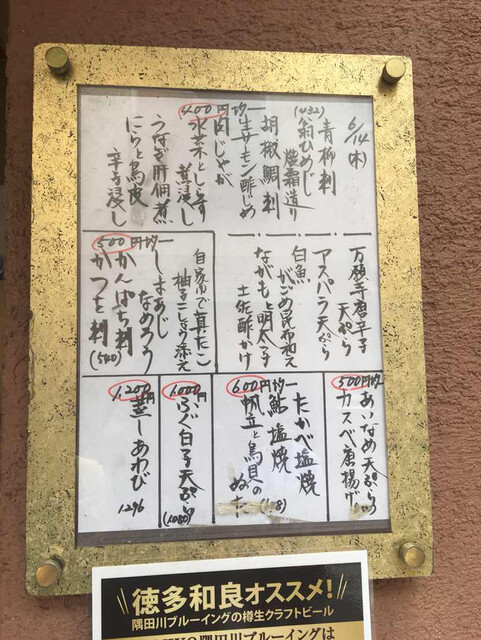 6/14(木)
青柳刺
翁ひめじ焼霜造り
胡椒鯛刺
生サモン酢じめ
400円均一
(432)
肉じゃが
水菜としらす煮浸し
うなぎ肝佃煮
にらと鳥皮辛子浸し
万願寺唐辛子天ぷら
アスパラ天ぷら
白魚がごめ昆布和え
ながもと明太子土佐酢かけ
自家ゆで真たこ柚子こしょう添え
しまあじなめろう
500円均一
かんぱち刺
かつを刺
(540)
500円均
あいなめ天ぷら
カスベ唐揚げ
たかべ塩焼
600円均一
鮎塩焼
帆立と鳥貝のぬた
(648)
1,000円
ふぐ白子天ぷら
(1080)
1,200円
蒸しあわび
1296
徳多和良オススメ!
隅田川ブルーイングの樽生クラフトビール